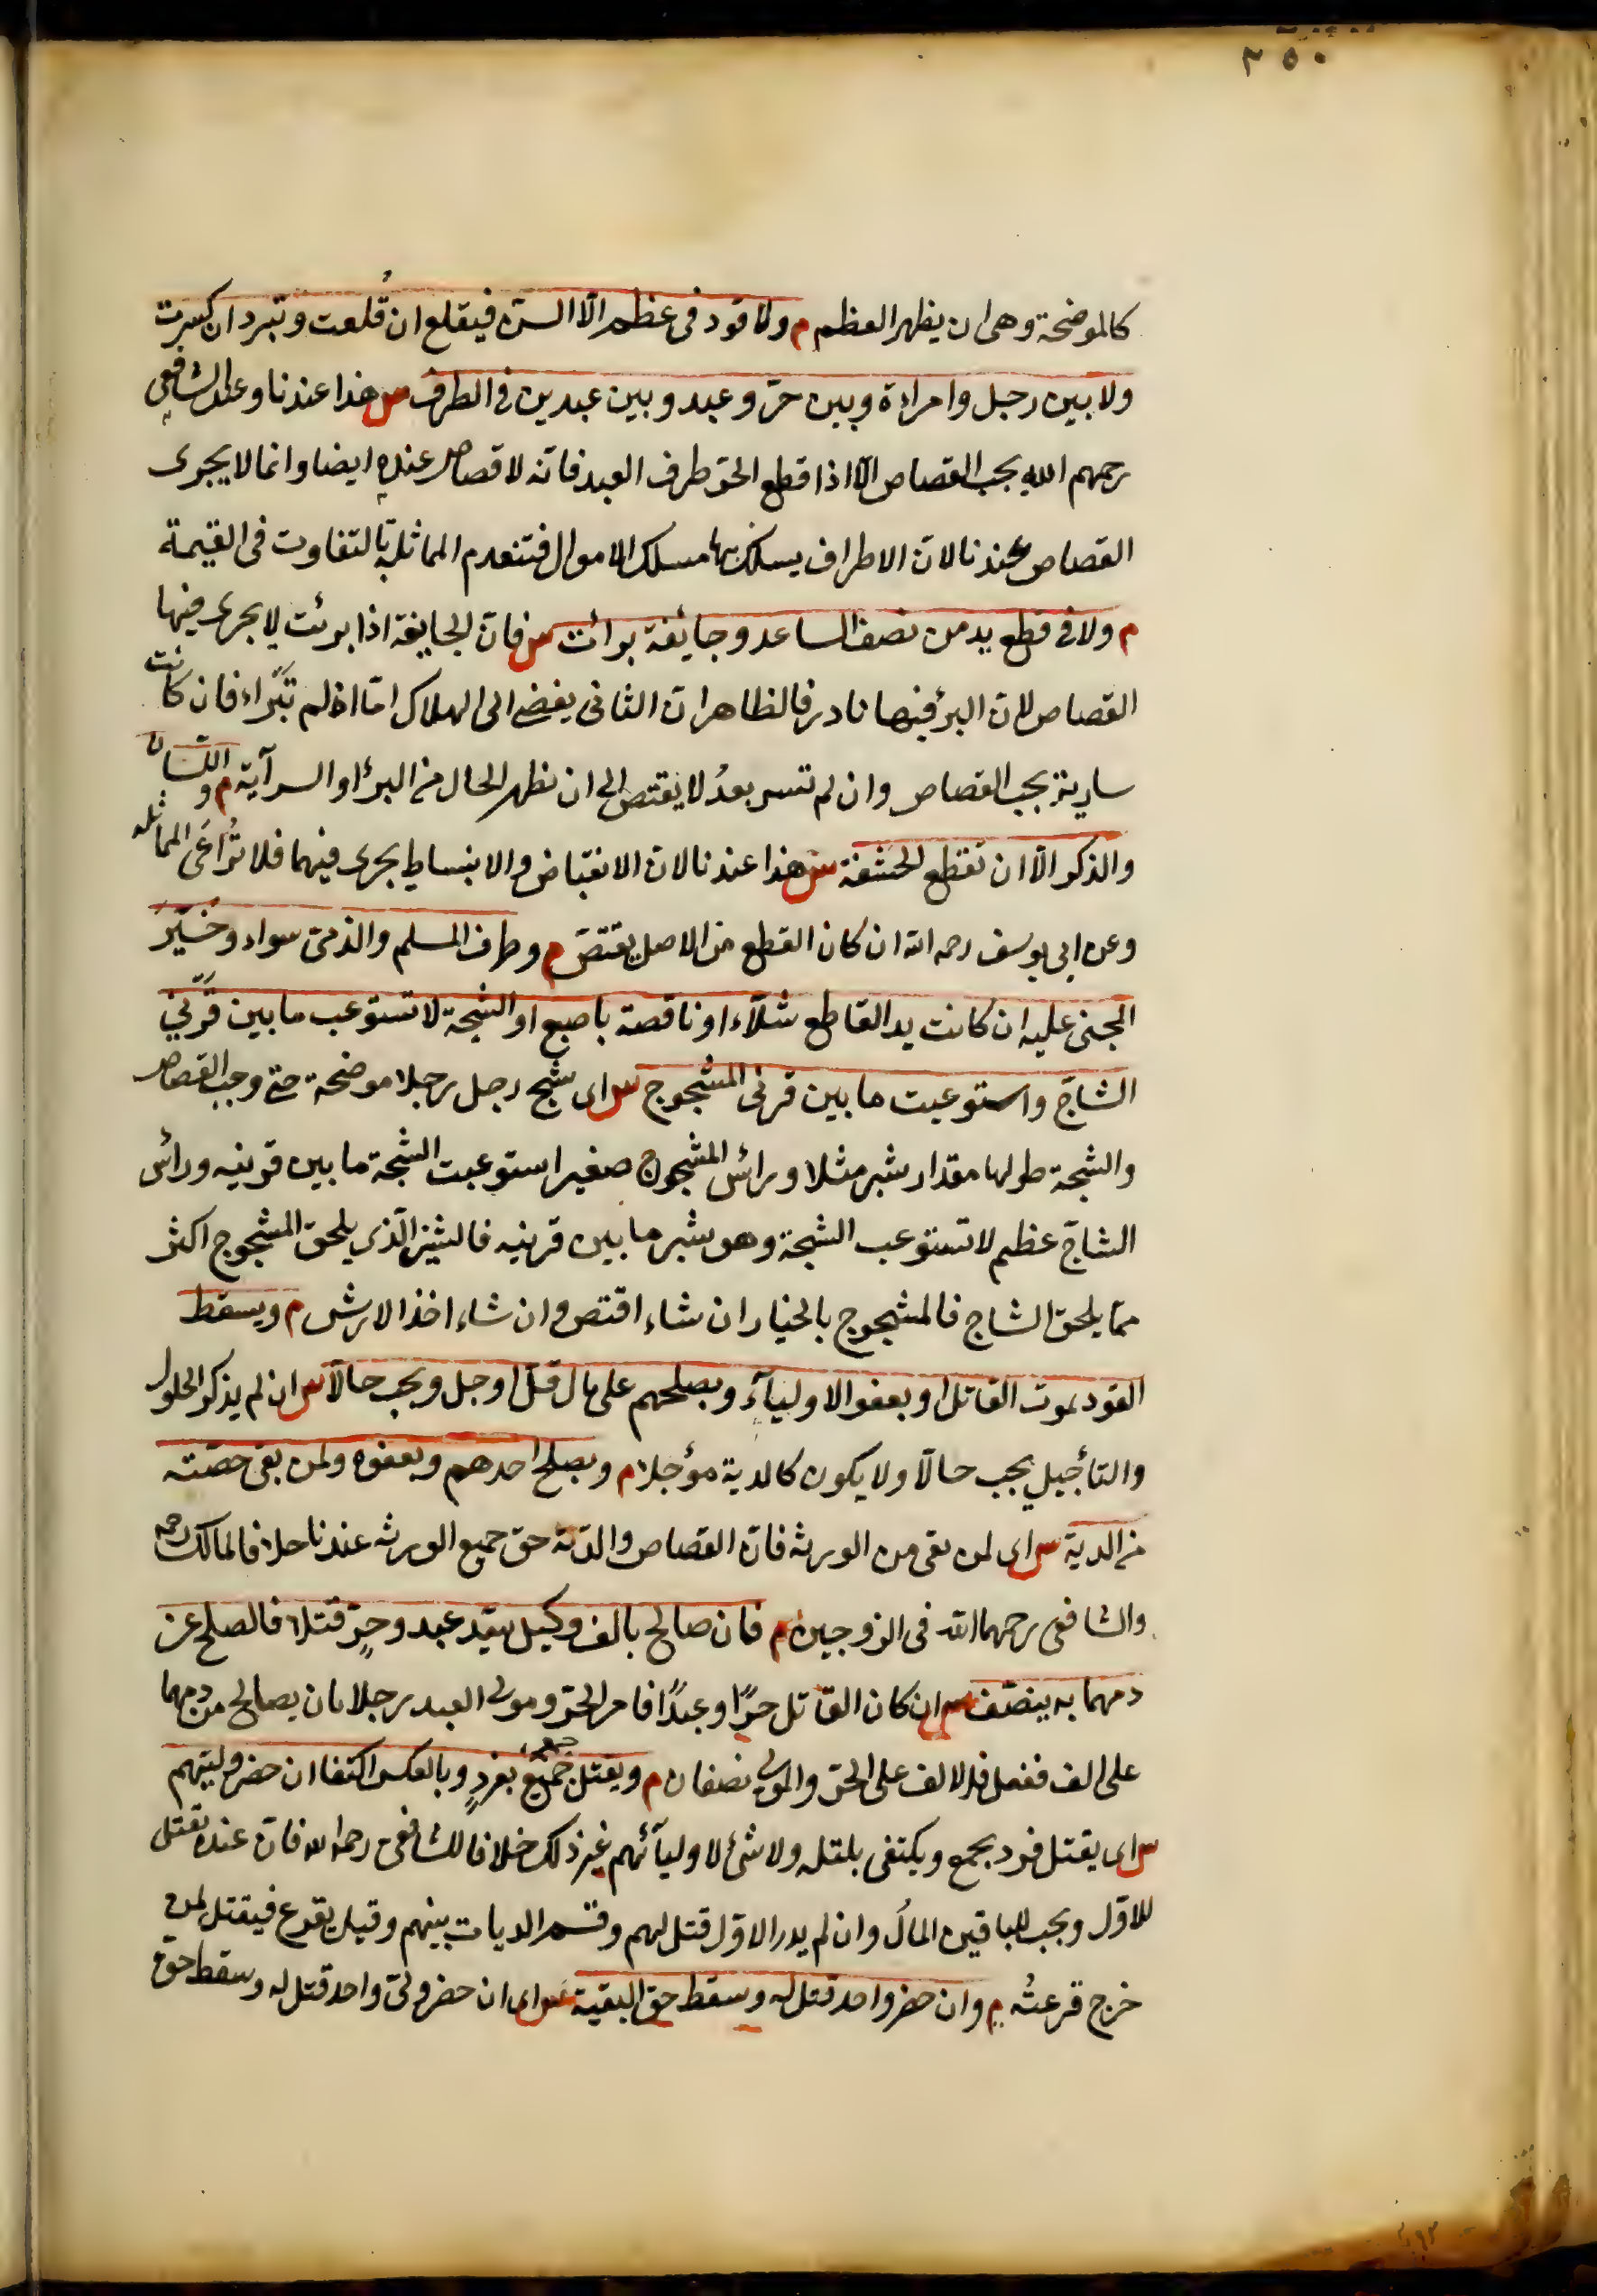 ٢٥٠
كالموضحة وهى ان يظهر العظم م ولا قود فى عظم الّا السنّ فيقلع ان قُلعت وتبرد ان كسرت
ولا بين رجل وامراءة وبين حرّ وعبد وبين عبدين فى الطرف س هذا عندنا وعند الشافعى
رحمهم الله يجب القصاص الّا اذا قطع الحرّ طرف العبد فانّه لا قصاص عنده ايضا وانما لا يجرى
القصاص عندنا لانّ الاطراف يسلك بها مسلك الاموال فتنعدم المماثلة بالتفاوت فى القيمة
م ولا فى قطع يد من نصف الساعد وجايفة برائت س فانّ الجايفة اذا برئت لا يجرى فيها
القصاص لانّ البرؤ فيها نادر فالظاهر انّ الثانى يفضى الى الهلاك امّا اذا لم تبراء فان كانت
سارية يجب القصاص وان لم تسر بعدُ لا يقتص الى ان نظهر الحال من البرؤ او السرآية م واللسان
والذكر الّا ان تقطع الحشفة س هذا عندنا لانّ الانقباض والانبساط يجرى فيهما فلا تُراعَى المماثلة
وعن ابى يوسف رحمه الله ان كان القطع من الاصل يقتصّ م وطرف المسلم والذمىّ سواء وخُيّرَ
المجنى عليه ان كانت يد القاطع شلّآء او ناقصة باصبع او الشجة لا تستوعب ما بين قرنَى
الشاجّ واستوعبت ما بين قرنى المشجوج س اى شج رجل رجلا موضحة حتى وجب القصاص
والشجة طولها مقدار شبر مثلا ورائس المشجوج صغير استوعبت الشجة ما بين قرنيه ورائس
الشاجّ عظيم لا تستوعب الشجة وهو شبر ما بين قرنيه فالشين الّذى يلحق المشجوج اكثر
ممّا يلحق الشاج فالمشجوج بالخيار ان شاء اقتص وان شاء اخذ الارش م ويسقط
القود بموت القاتل او بعفو الاوليآء وبصلحهم على مال قلّ او جل ويجب حالّا س ان لم يذكر الحلول
والتأجيل يجب حالّا ولا يكون كالدية مؤجلا م وبصلح احدهم وبعفوه ولمن بقى حصّته
من الدية س اى لمن بقى من الورثه فانّ القصاص والديّة حق جميع الورثه عندنا خلافا لمالك رحمه
والشافعى رحمهما الله فى الزوجين م فان صالح بالف وكيل سيّد عبد وحرٍّ قتلا فالصلح عن
دمهما به ينصّف س ان كان القاتل حرًّا وعبدًا فامر الحرّ ومولى العبد رجلا بان يصالح من دمهما
على الف ففعل فالالف على الحرّ والمولى نصفان م ويقتل جمعٌ بفردٍ وبالعكس اكتفاءً ان حضر وليّهم
س اى يقتل فرد بجمع ويكتفى بقتله ولا شئ لاوليآئهم غير ذلك خلافا للشافعى رحمه الله فانّ عنده يقتل
للاوّل ويجب للباقين المالُ وان لم يدر الاوّل قتل لهم وقسم الديات بينهم وقيل يقرع فيقتل لمن
خرج قرعتُه م وان حضر واحد قتل له وسقط حق البقية س اى ان حضر ولىّ واحد قتل له وسقط حقّ